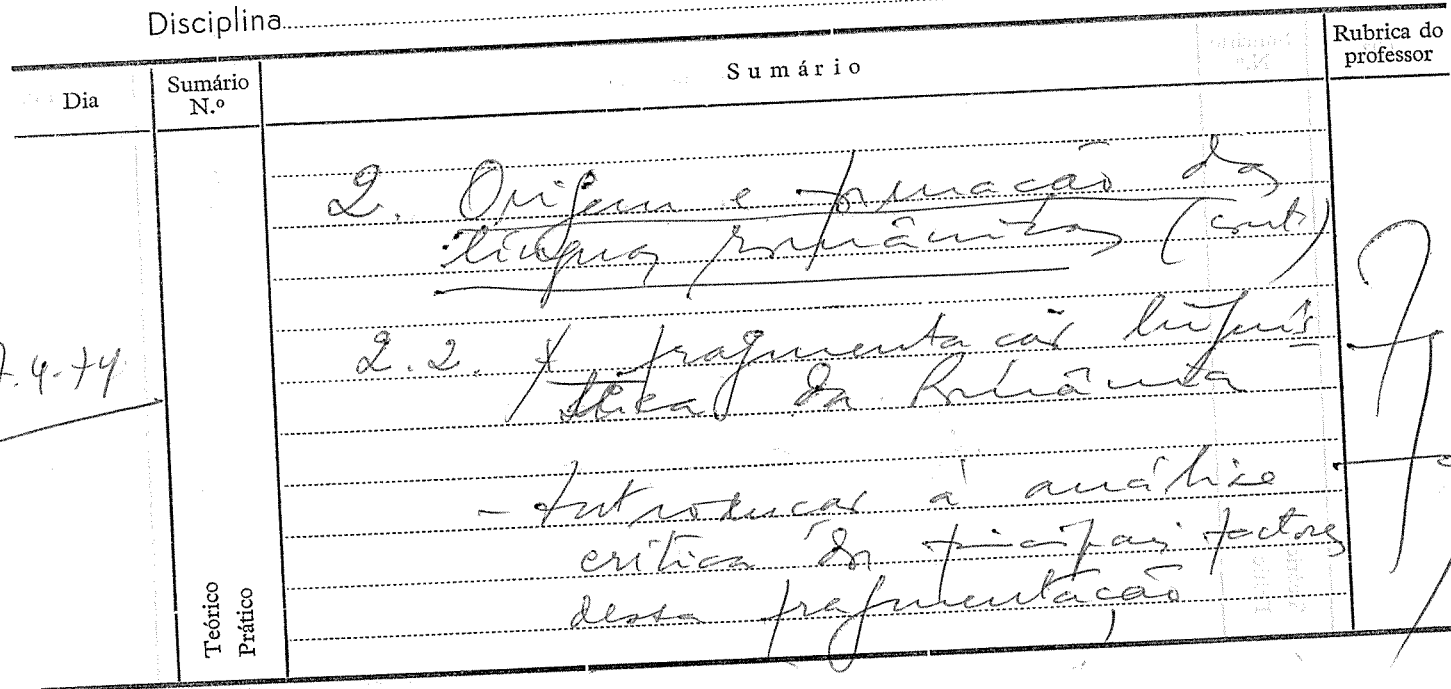 Disciplina
Dia
Sumário N.º
Sumário
Rubrica do professor
2. Origem e formação das
línguas românicas (cont.)
7.4.74
2.2. A fragmentação linguís-
tica da România
- Introdução à análise
crítica dos principais factores
dessa fragmentação
Teórico
Prático